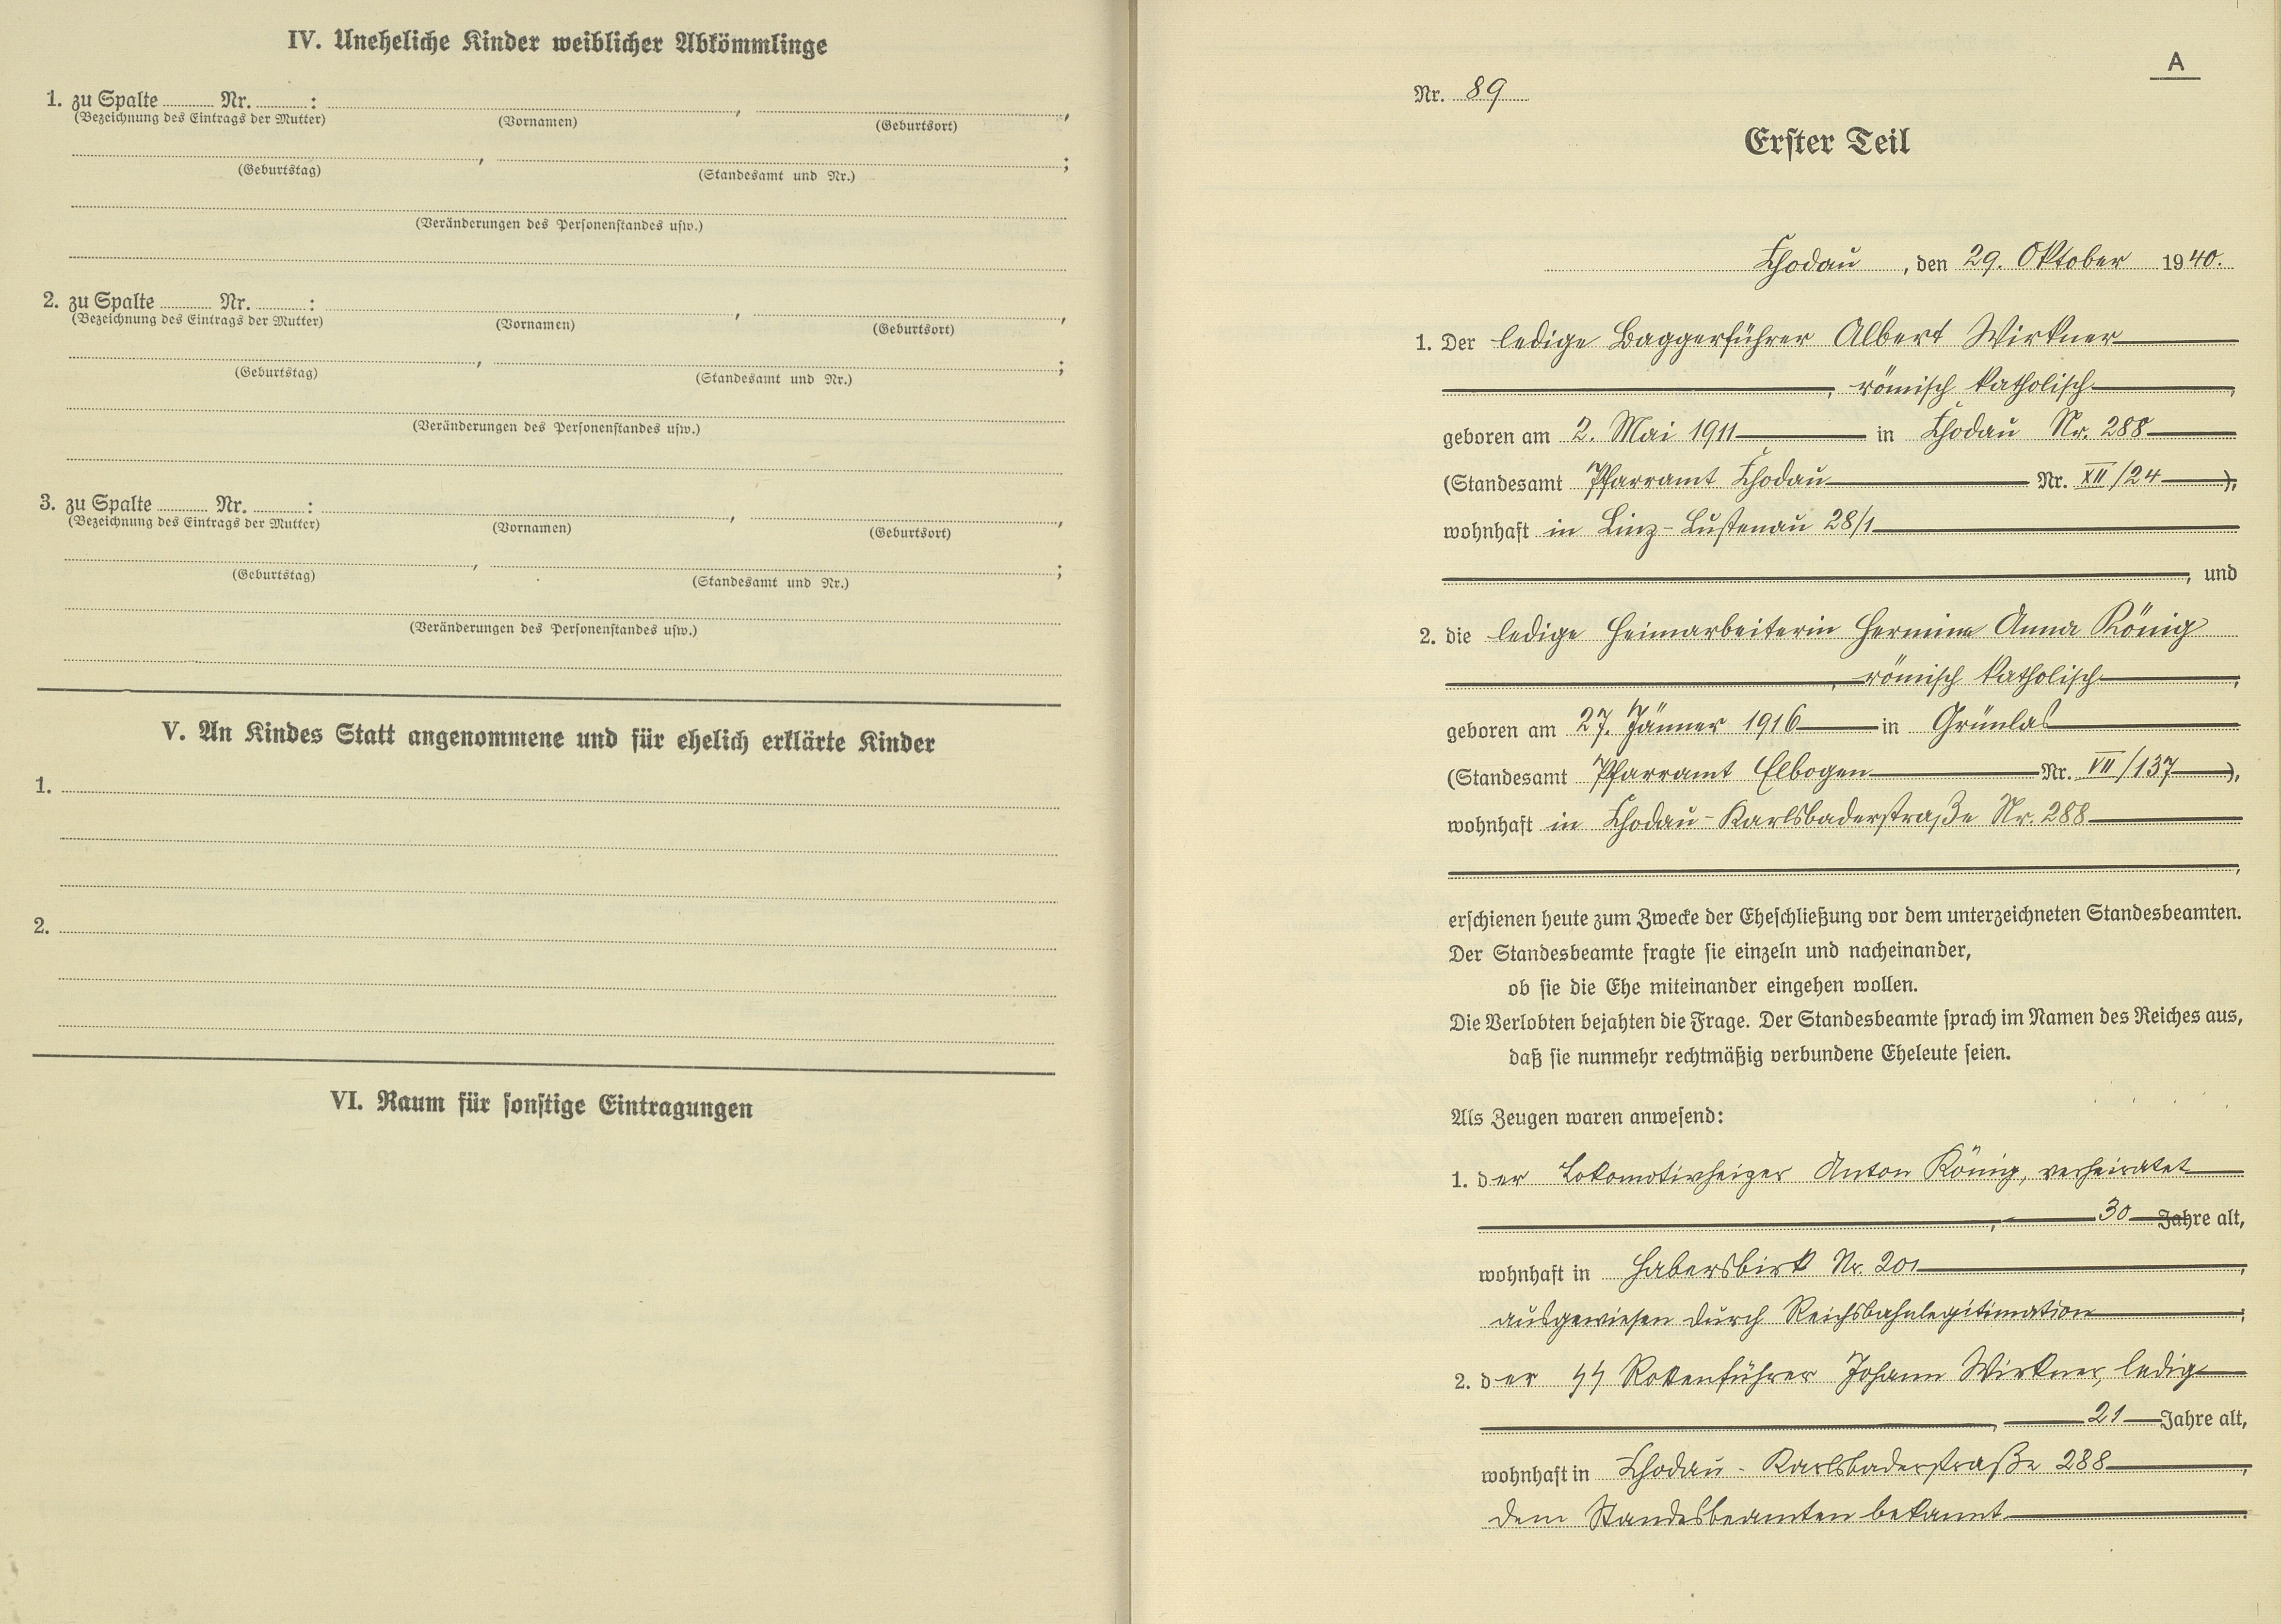 IV. Uneheliche Kinder weiblicher Abkömmlinge
1. zu Spalte ........ Nr. ........ : ........ , ........ ,
(Bezeichnung des Eintrags der Mutter) (Vornamen) (Geburtsort)
........ , ........ ;
(Geburtstag) (Standesamt und Nr.)
(Veränderungen des Personenstandes usw.)
2. zu Spalte ........ Nr. ........ : ........ , ........ ,
(Bezeichnung des Eintrags der Mutter) (Vornamen) (Geburtsort)
........ , ........ ;
(Geburtstag) (Standesamt und Nr.)
(Veränderungen des Personenstandes usw.)
3. zu Spalte ........ Nr. ........ : ........ , ........ ,
(Bezeichnung des Eintrags der Mutter) (Vornamen) (Geburtsort)
........ , ........ ;
(Geburtstag) (Standesamt und Nr.)
(Veränderungen des Personenstandes usw.)
V. An Kindes Statt angenommene und für ehelich erklärte Kinder
1.
2.
VI. Raum für sonstige Eintragungen
A
Nr. 89
Erster Teil
Chodau, den 29. Oktober 1940.
1. Der ledige Baggerführer Albert Wirkner
, römisch katholisch,
geboren am 2. Mai 1911 in Chodau Nr. 288
(Standesamt Pfarramt Chodau Nr. XII/24),
wohnhaft in Linz-Lustenau 28/1
, und
2. die ledige Heimarbeiterin Hermine Anna König
, römisch katholisch,
geboren am 27. Jänner 1916 in Grünlas
(Standesamt Pfarramt Elbogen Nr. VII/137),
wohnhaft in Chodau-Karlsbaderstraße Nr. 288
,
erschienen heute zum Zwecke der Eheschließung vor dem unterzeichneten Standesbeamten.
Der Standesbeamte fragte sie einzeln und nacheinander,
ob sie die Ehe miteinander eingehen wollen.
Die Verlobten bejahten die Frage. Der Standesbeamte sprach im Namen des Reiches aus,
daß sie nunmehr rechtmäßig verbundene Eheleute seien.
Als Zeugen waren anwesend:
1. der Lokomotivheizer Anton König, verheiratet
, 30 Jahre alt,
wohnhaft in Habersbirk Nr. 201,
ausgewiesen durch Reichsbahnlegitimation;
2. der SS Rottenführer Johann Wirkner, ledig
, 21 Jahre alt,
wohnhaft in Chodau - Karlsbaderstraße 288,
dem Standesbeamten bekannt.